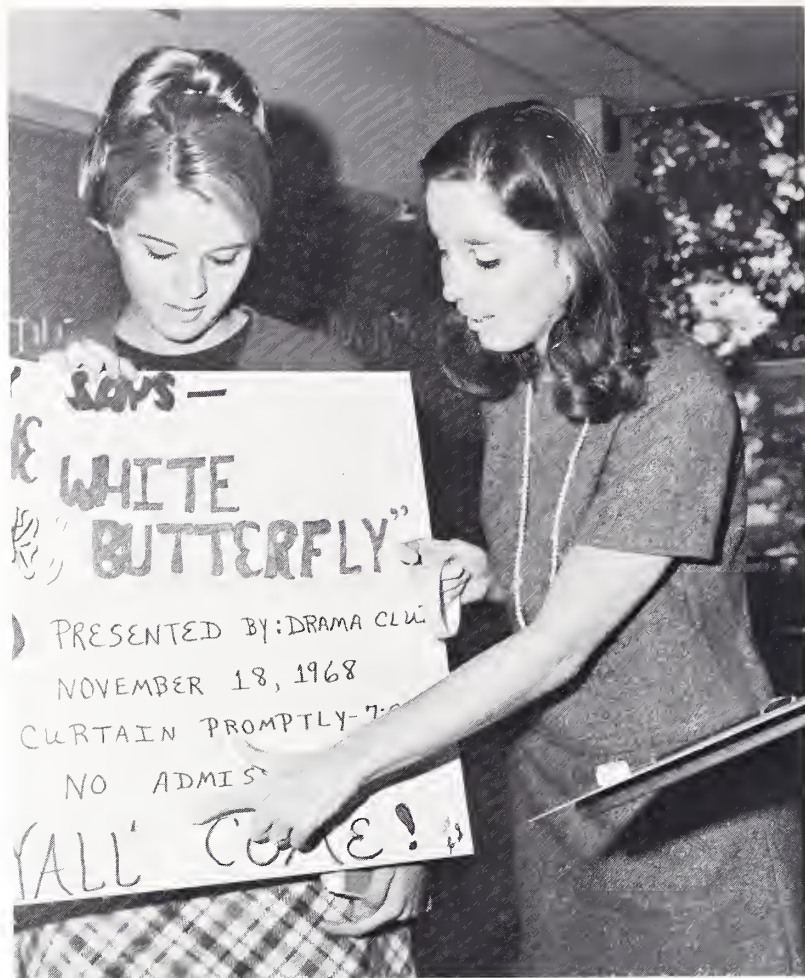 SAYS —
WHITE
BUTTERFLY"
PRESENTED BY: DRAMA CLU
NOVEMBER 18, 1968
CURTAIN PROMPTLY-7:
NO ADMIS
Y'ALL COME!